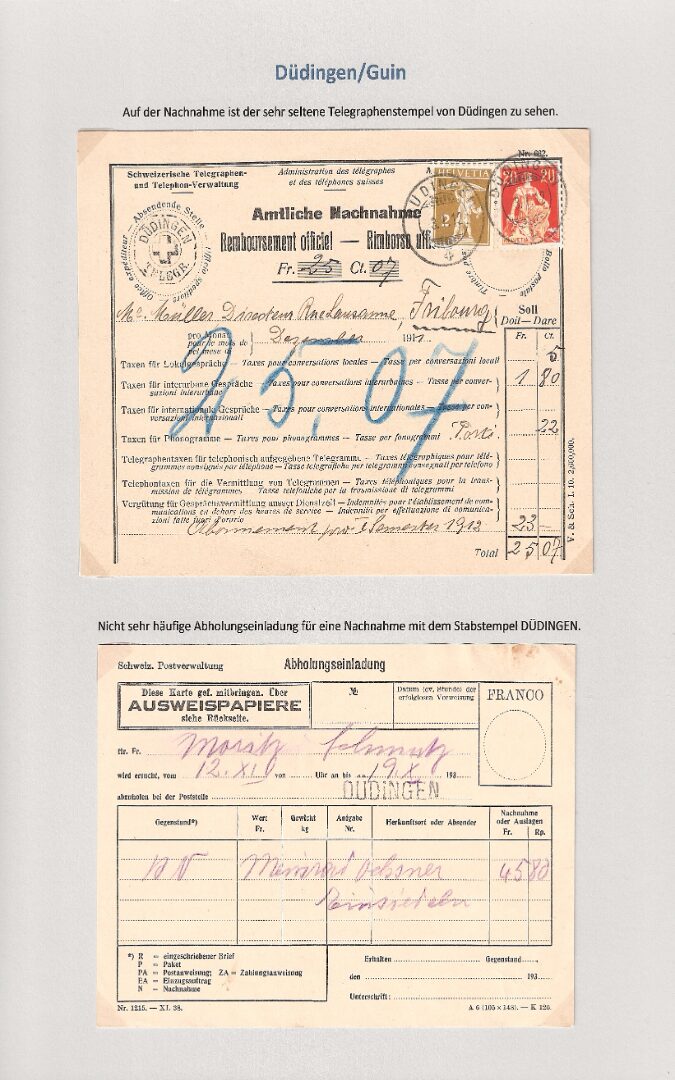 Düdingen/Guin
Auf der Nachnahme ist der sehr seltene Telegraphenstempel von Düdingen zu sehen.
Nr. 692.
Schweizerische Telegraphen-
und Telephon-Verwaltung
Administration des télégraphes
et des téléphones suisses
HELVETIA
20 20
HELVETIA
Absendende Stelle
Office expéditeur
Ufficio speditore
DÜDINGEN
TELEGR.
Amtliche Nachnahme
Remboursement officiel — Rimborso uffi
Fr. 25 Ct. 07
Bollo postale
Mr. Müller Directeur Rue Lausanne, Fribourg
pro Monat
pour le mois de
pel mese di
Dezember 1911.
Soll
Doit — Dare
Fr. Ct.
25,07
Taxen für Lokalgespräche — Taxes pour conversations locales — Tasse per conversazioni locali
5
Taxen für interurbane Gespräche — Taxes pour conversations interurbaines — Tasse per conver-
sazioni interurbane
1 80
Taxen für internationale Gespräche — Taxes pour conversations internationales — Tasse per con-
versazioni internazionali
Taxen für Phonogramme — Taxes pour phonogrammes — Tasse per fonogrammi Porti
22
Telegraphentaxen für telephonisch aufgegebene Telegramme — Taxes télégraphiques pour télé-
grammes consignés par téléphone — Tasse telegrafiche per telegrammi consegnati per telefono
Telephontaxen für die Vermittlung von Telegrammen — Taxes téléphoniques pour la trans-
mission de télégrammes. Tasse telefoniche per la trasmissione di telegrammi
Vergütung für Gesprächsvermittlung ausser Dienstzeit — Indemnité pour l'établissement de com-
munications en dehors des heures de service — Indennità per effettuazione di comunica-
zioni fatte fuori d'orario
Abonnement pro I Semester 1912 23 —
Total 25 07
V. & Sch. I. 10. 2,000,000.
Nicht sehr häufige Abholungseinladung für eine Nachnahme mit dem Stabstempel DÜDINGEN.
Schweiz. Postverwaltung
Abholungseinladung
Diese Karte gef. mitbringen. Über
AUSWEISPAPIERE
siehe Rückseite.
№
Datum (ev. Stunde) der
erfolglosen Vorweisung
FRANCO
Hr. Fr. Moritz Schmutz
wird ersucht, vom 12. XI von Uhr an bis 19 X 193
abzuholen bei der Poststelle DÜDINGEN
Gegenstand*)
Wert
Fr.
Gewicht
kg
Aufgabe
Nr.
Herkunftsort oder Absender
Nachnahme
oder Auslagen
Fr. Rp.
N Meinrad Ochsner 45 80
Einsiedeln
*) R = eingeschriebener Brief
P = Paket
PA = Postanweisung; ZA = Zahlungsanweisung
EA = Einzugsauftrag
N = Nachnahme
Erhalten Gegenstand
den 193
Unterschrift:
Nr. 1215. — XI. 38.
A 6 (105 × 148). — K 125.